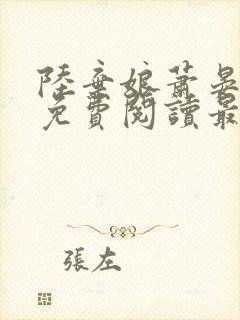 陸棄娘蕭晏
免費閱讀最
張左